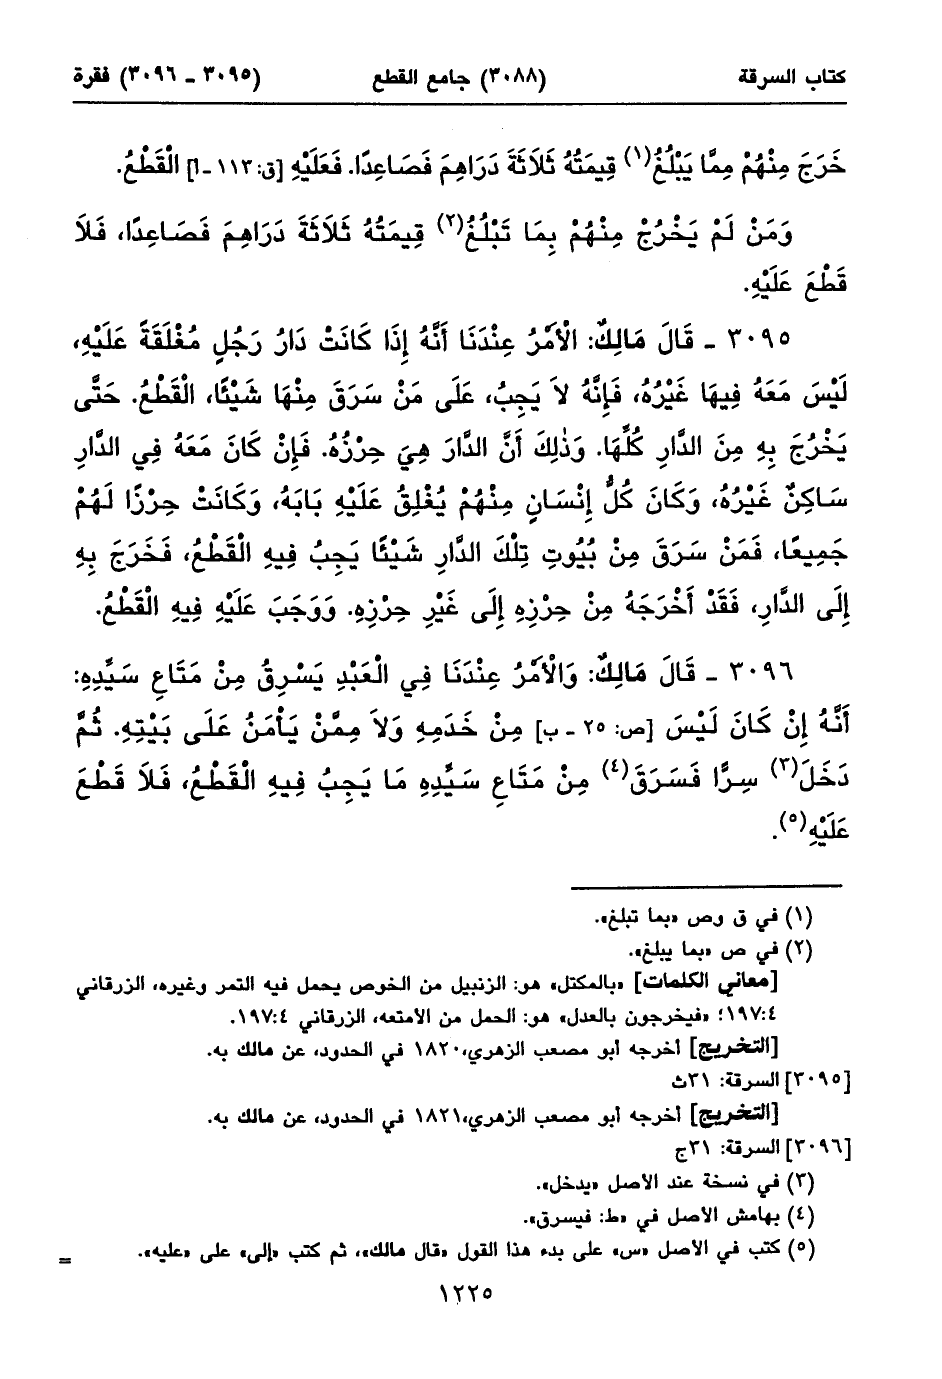 كتاب السرقة (٣٠٨٨) جامع القطع (٣٠٩٥ - ٣٠٩٦) فقرة
خَرَجَ مِنْهُمْ مِمَّا يَبْلُغُ(١) قِيمَتُهُ ثَلَاثَةَ دَرَاهِمَ فَصَاعِدًا. فَعَلَيْهِ [ق: ١١٣ - أ] الْقَطْعُ.
وَمَنْ لَمْ يَخْرُجْ مِنْهُمْ بِمَا تَبْلُغُ(٢) قِيمَتُهُ ثَلَاثَةَ دَرَاهِمَ فَصَاعِدًا، فَلَا
قَطْعَ عَلَيْهِ.
٣٠٩٥ - قَالَ مَالِكٌ: الْأَمْرُ عِنْدَنَا أَنَّهُ إِذَا كَانَتْ دَارُ رَجُلٍ مُغْلَقَةً عَلَيْهِ،
لَيْسَ مَعَهُ فِيهَا غَيْرُهُ، فَإِنَّهُ لاَ يَجِبُ، عَلَى مَنْ سَرَقَ مِنْهَا شَيْئًا، الْقَطْعُ. حَتَّى
يَخْرُجَ بِهِ مِنَ الدَّارِ كُلِّهَا. وَذٰلِكَ أَنَّ الدَّارَ هِيَ حِرْزُهُ. فَإِنْ كَانَ مَعَهُ فِي الدَّارِ
سَاكِنٌ غَيْرُهُ، وَكَانَ كُلُّ إِنْسَانٍ مِنْهُمْ يُغْلِقُ عَلَيْهِ بَابَهُ، وَكَانَتْ حِرْزًا لَهُمْ
جَمِيعًا، فَمَنْ سَرَقَ مِنْ بُيُوتِ تِلْكَ الدَّارِ شَيْئًا يَجِبُ فِيهِ الْقَطْعُ، فَخَرَجَ بِهِ
إِلَى الدَّارِ، فَقَدْ أَخْرَجَهُ مِنْ حِرْزِهِ إِلَى غَيْرِ حِرْزِهِ. وَوَجَبَ عَلَيْهِ فِيهِ الْقَطْعُ.
٣٠٩٦ - قَالَ مَالِكٌ: وَالْأَمْرُ عِنْدَنَا فِي الْعَبْدِ يَسْرِقُ مِنْ مَتَاعِ سَيِّدِهِ:
أَنَّهُ إِنْ كَانَ لَيْسَ [ص: ٢٥ - ب] مِنْ خَدَمِهِ وَلاَ مِمَّنْ يَأْمَنُ عَلَى بَيْتِهِ. ثُمَّ
دَخَلَ(٣) سِرًّا فَسَرَقَ(٤) مِنْ مَتَاعِ سَيِّدِهِ مَا يَجِبُ فِيهِ الْقَطْعُ، فَلَا قَطْعَ
عَلَيْهِ(٥).
(١) في ق وص «بما تبلغ».
(٢) في ص «بما يبلغ».
[معاني الكلمات] «بالمكتل» هو: الزنبيل من الخوص يحمل فيه التمر وغيره، الزرقاني
٤:١٩٧؛ «فيخرجون بالعدل» هو: الحمل من الأمتعه، الزرقاني ٤:١٩٧.
[التخريج] أخرجه أبو مصعب الزهري، ١٨٢٠ في الحدود، عن مالك به.
[٣٠٩٥] السرقة: ٣١ث
[التخريج] أخرجه أبو مصعب الزهري، ١٨٢١ في الحدود، عن مالك به.
[٣٠٩٦] السرقة: ٣١ج
(٣) في نسخة عند الأصل «يدخل».
(٤) بهامش الأصل في «ط: فيسرق».
(٥) كتب في الأصل «س» على بدء هذا القول «قال مالك»، ثم كتب «إلى» على «عليه». =
١٢٢٥